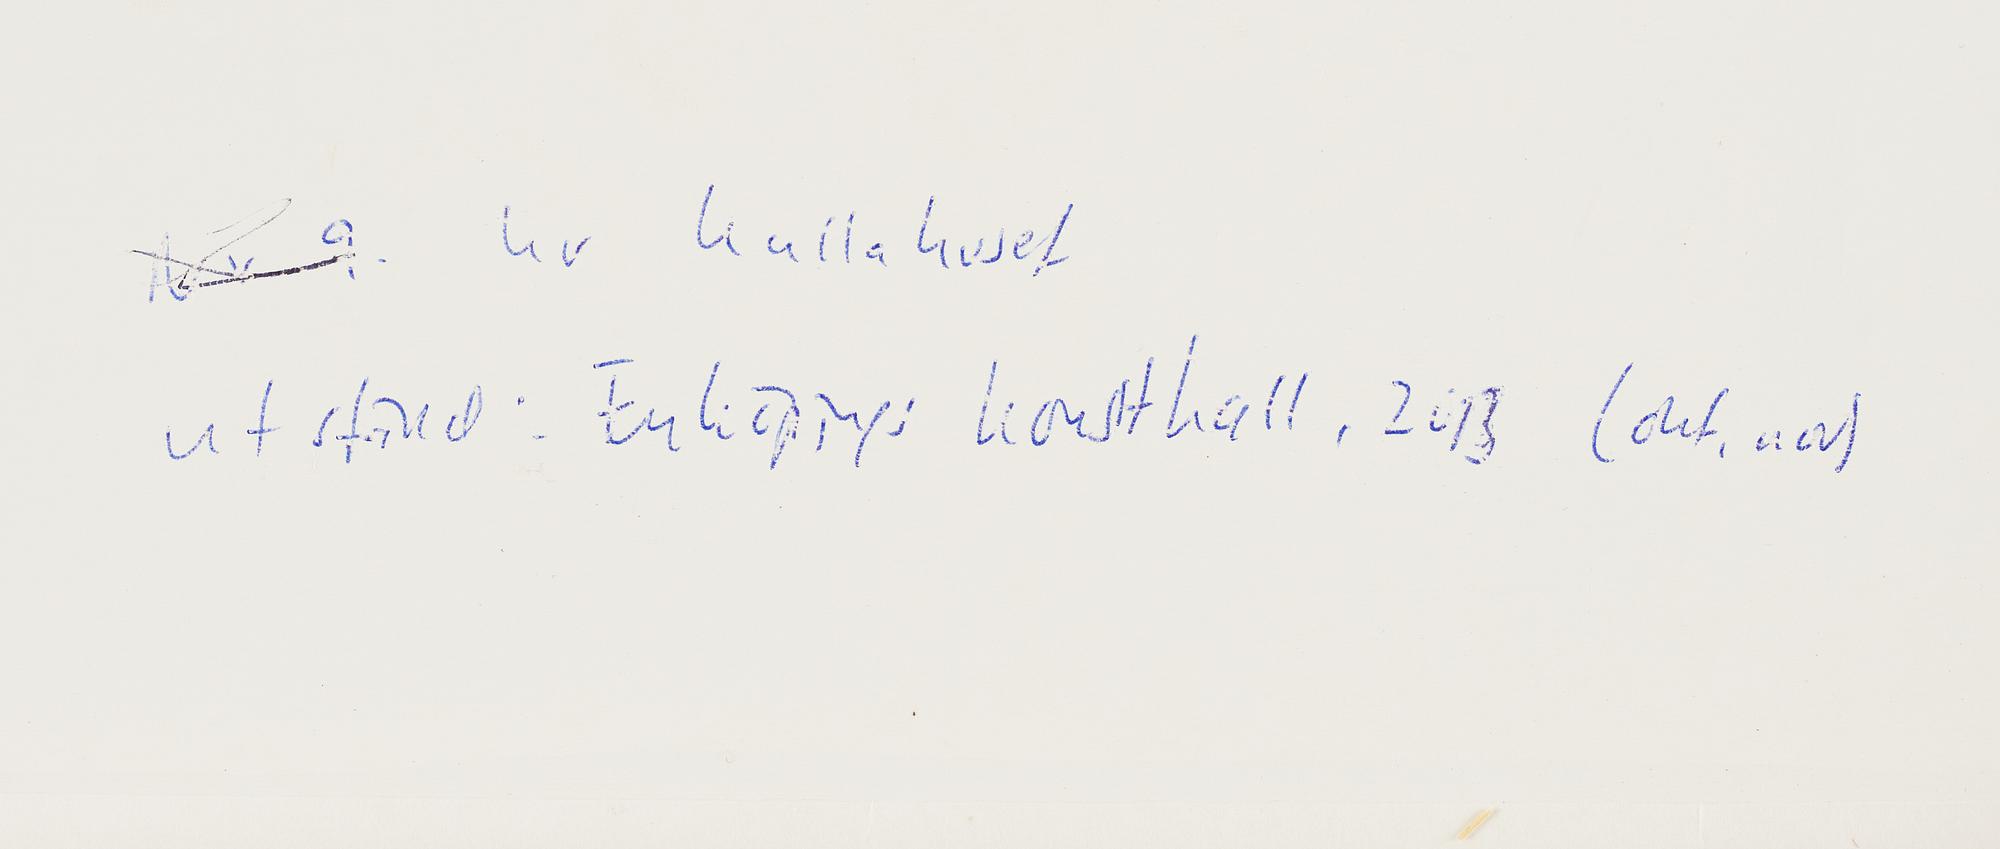 9. kv källahuset
utställd: Enköpings konsthall, 2013 (okt, nov)